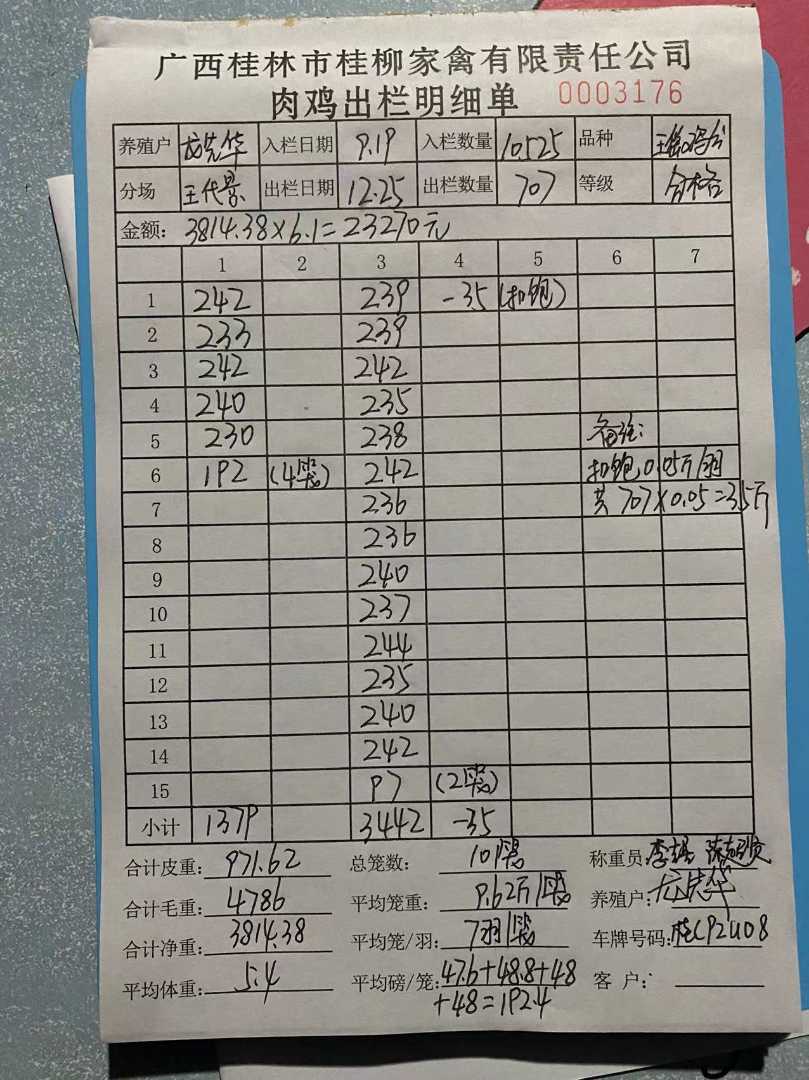 广西桂林市桂柳家禽有限责任公司
肉鸡出栏明细单 0003176
养殖户 龙先华 入栏日期 9.19 入栏数量 10525 品种
分场 王代景 出栏日期 12.25 出栏数量 707 等级 合格
金额: 3814.38×6.1=23270元
1 2 3 4 5 6 7
1 242 239 -35 (扣饱)
2 233 239
3 242 242
4 240 235
5 230 238 备注:
6 192 (4笼) 242 扣饱0.05斤/羽
7 236 共707×0.05=35斤
8 236
9 240
10 237
11 244
12 235
13 240
14 242
15 97 (2笼)
小计 1379 3442 -35
合计皮重: 971.62 总笼数: 101笼 称重员:
合计毛重: 4786 平均笼重: 9.62斤/笼 养殖户: 龙先华
合计净重: 3814.38 平均笼/羽: 7羽/笼 车牌号码: 桂CP2U08
平均体重: 5.4 平均磅/笼: 47.6+48.8+48 客 户:
+48=192.4